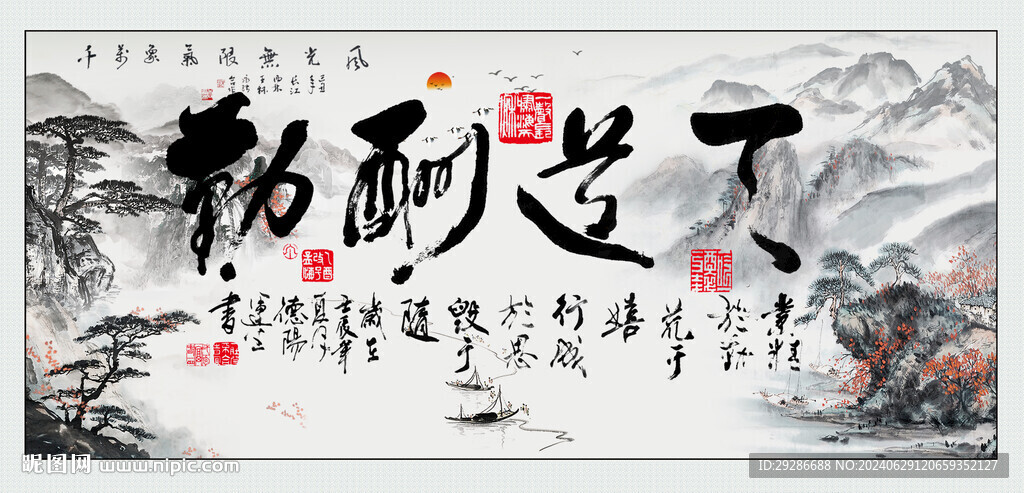 風光無限氣象萬千
天道酬勤
業精
於勤
荒于
嬉
行成
於思
毁于
隨
歲在
壬辰年
夏月
德陽
書
昵图网 www.nipic.com
ID:29286688 NO:20240629120659352127